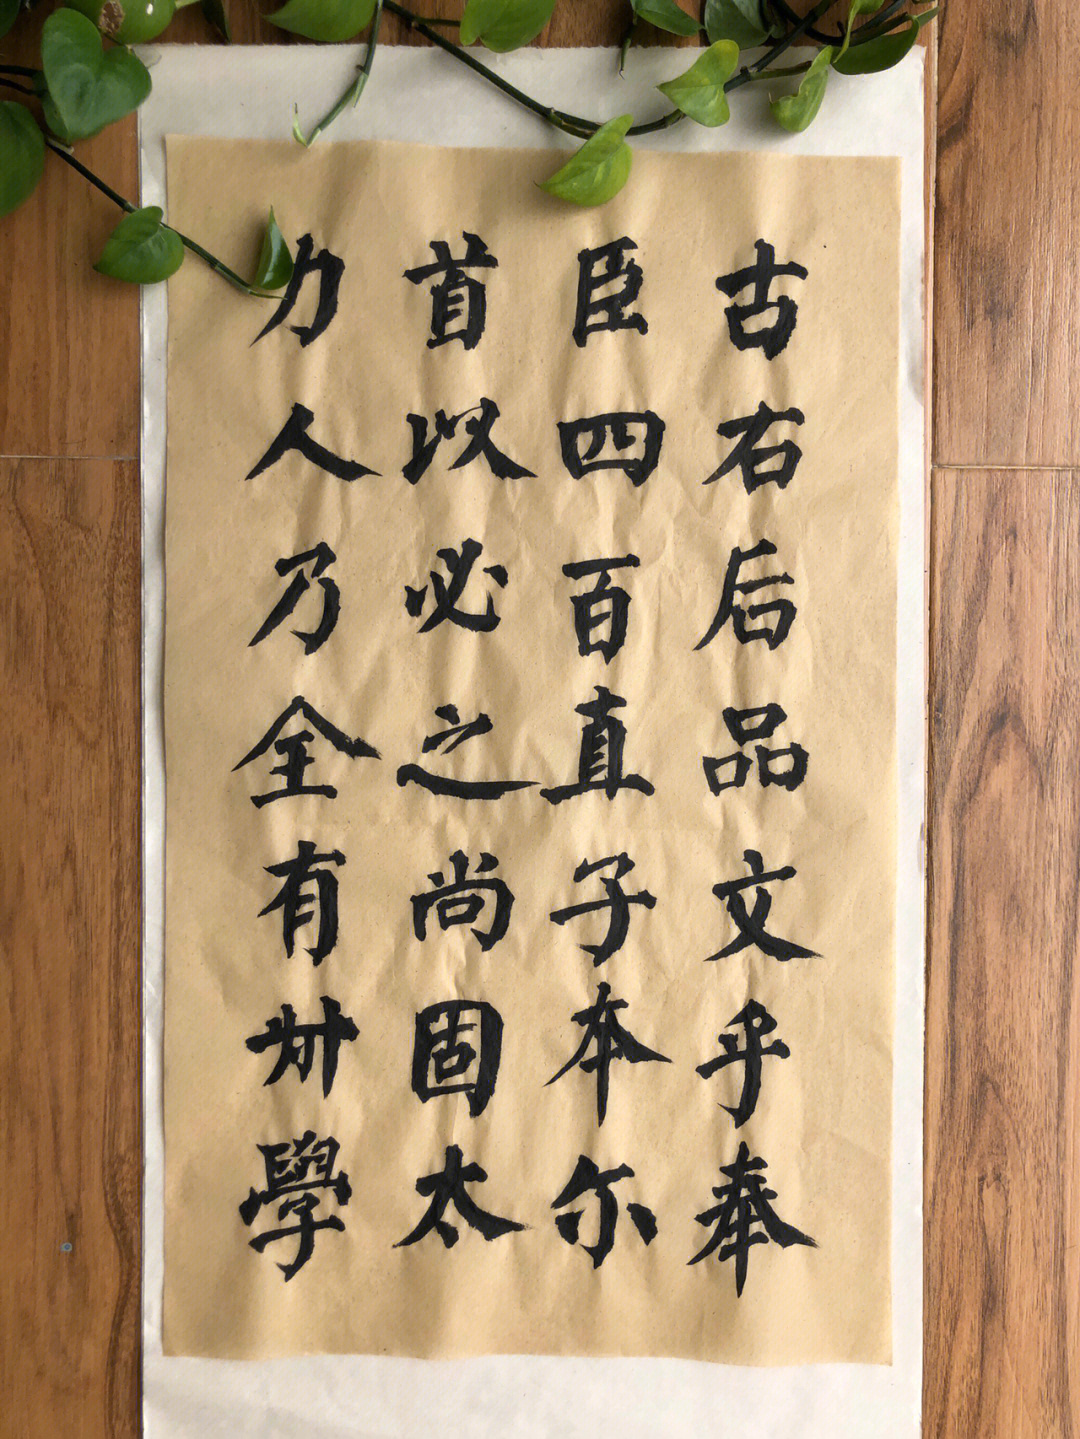 古右后品文乎奉
臣四百直子本尔
首以必之尚固太
力人乃全有州學